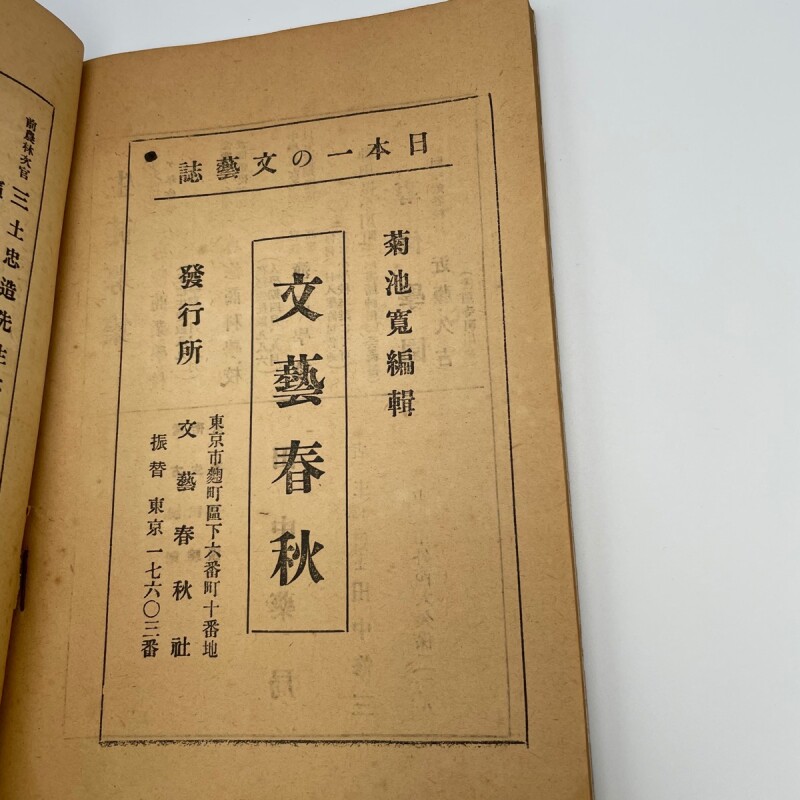 日本一の文藝誌
菊池寬編輯
文藝春秋
發行所
東京市麴町區下六番町十番地
文藝春秋社
振替東京一七六〇三番
前農林次官
三土忠造先生